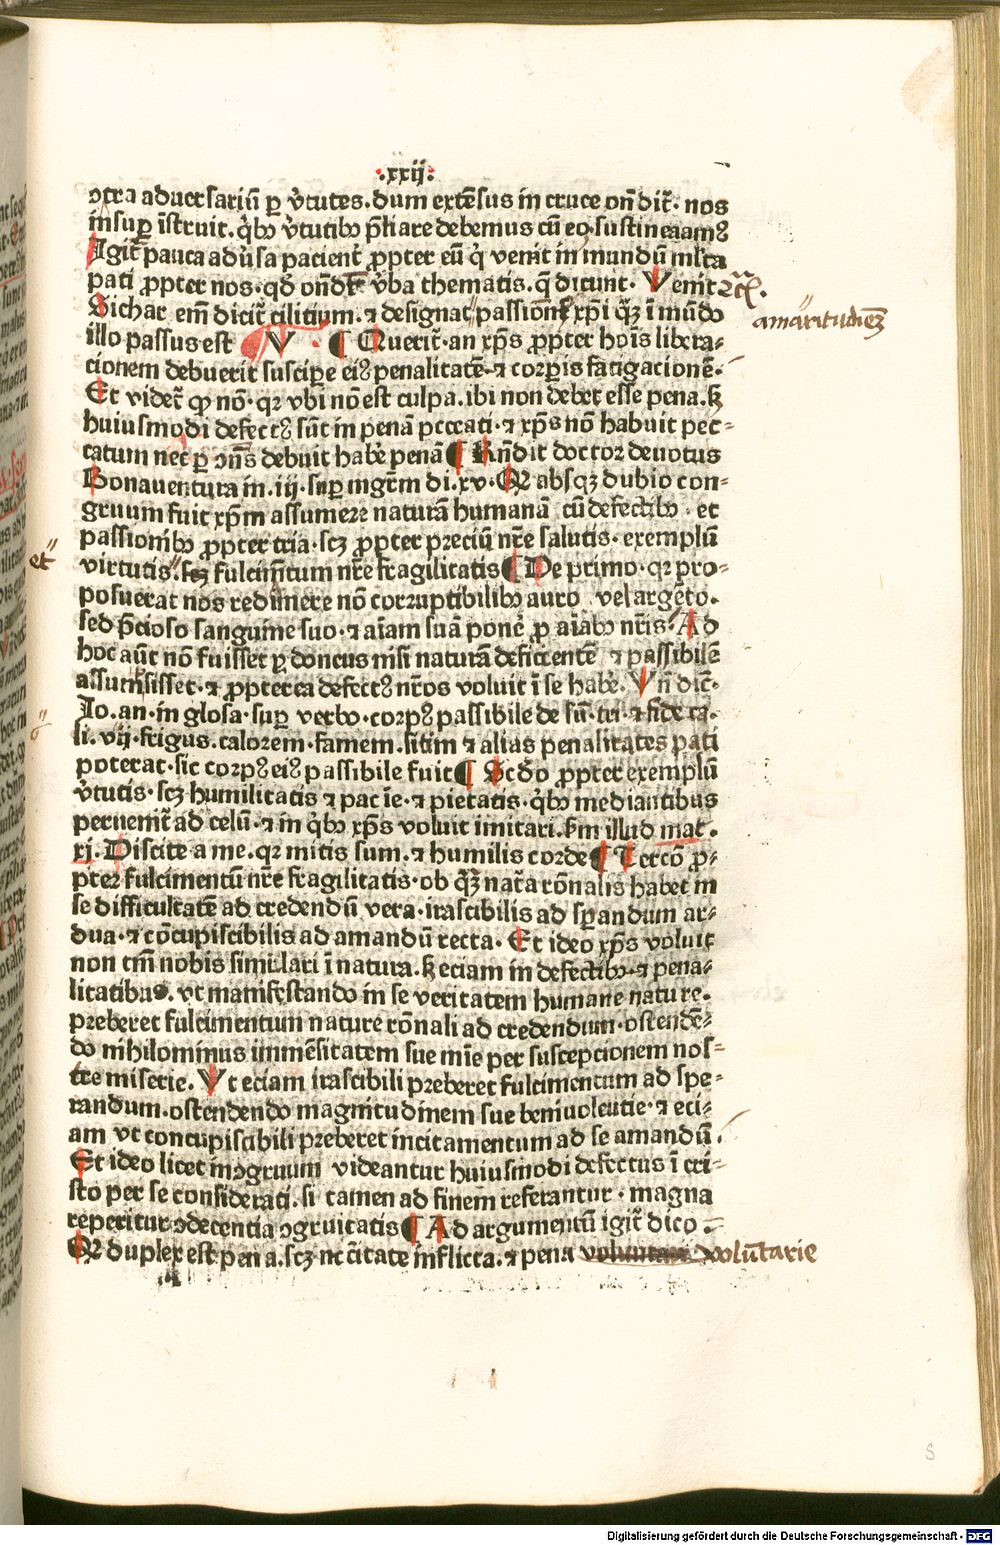 .xxij.
ↄtra aduersariū ꝑ v̓tutes. dum extēsus in cruce on̄dit̄. nos
insuꝑ īstruit. q̓bꝰ v̓tutibꝰ p̄liare debemus cū eo. sustineamꝰ
Igit̄ pauca adūsa pacient̓ ꝓpter eū q̓ venit in mundū ml̓ta
pati ꝓpter nos. qd̓ on̄dt̄ v̓ba thematis. q̄ dicunt. Venit ⁊c̄.
Sichar em̄ dicit̄ cilicium. ⁊ designat passionē xp̄i quā ī mūdo
amaritudinē
illo passus est V. ¶ Querit̄. an xp̄s ꝓpter hoīs libera⸗
cionem debuerit suscipe eiꝰ penalitatē. ⁊ corꝑis fatigacionē.
Et videt̄ ꝙ nō. qꝛ vbi nō est culpa. ibi non debet esse pena. sꝫ
huiusmodi defectꝰ sūt in penā peccati. ⁊ xp̄s nō habuit pec⸗
catum nec ꝑ ↄn̄s debuit habe̓ penā ¶ Rn̄dit doctor deuotus
Bonauentura in. iij. suꝑ ingr̄m di. xv. Qꝫ absqꝫ dubio con⸗
gruum fuit xp̄m assumere naturā humanā cū defectibꝰ. et
passionibꝰ ꝓpter tria. scꝫ ꝓpter preciū nr̄e salutis. exemplū
et
virtutis. scꝫ fulcimētum nr̄e fragilitatis ¶ De primo. qꝛ pro⸗
posuerat nos redimere nō corruptibilibꝰ auro vel argēto.
sed p̄cioso sanguine suo. ⁊ aīam suā pone̓ ꝓ aīabꝰ nr̄is. Ad
hoc aūt nō fuisset ꝑ doneus nisi naturā deficientē ⁊ passibilē
assumsisset. ⁊ ꝓpterea defectꝰ nr̄os voluit ī se habe̓. Vn̄ dic̄.
Io. an. in glosa. suꝑ verbo. corpꝰ passibile de sū. tri. ⁊ fide ca.
si. vij. frigus. calorem. famem. sitim ⁊ alias penalitates pati
poterat. sic corpꝰ eiꝰ passibile fuit ¶ Scd̓o ꝓpter exemplū
v̓tutis. scꝫ humilitatis ⁊ pac īe. ⁊ pietatis. q̓bꝰ mediantibus
peruenit̄ ad celū. ⁊ in q̓bꝰ xp̄s voluit imitari. scd̓m illud mat.
xj. Discite a me. qꝛ mitis sum. ⁊ humilis corde ¶ Tercō ꝓ⸗
pter fulcimentū nr̄e fragilitatis. ob quā nat̄a rōnalis habet in
se difficultatē ad credendū vera. irascibilis ad sperandum ar⸗
dua. ⁊ cōcupiscibilis ad amandū recta. Et ideo xp̄s voluit
non tm̄ nobis similari ī natura. sꝫ eciam in defectibꝰ. ⁊ pena⸗
litatibus. vt manifestando in se veritatem humane nature.
preberet fulcimentum nature rōnali ad credendum. ostendē⸗
do nihilominus immēsitatem sue mīe per suscepcionem nos⸗
tre miserie. Vt eciam irascibili preberet fulcimentum ad spe⸗
randum. ostendendo magnitudinem sue beniuolentie. ⁊ eci⸗
am vt concupiscibili preberet incitamentum ad se amandū.
Et ideo licet inↄgruum videantur huiusmodi defectus ī cri⸗
sto per se considerati. si tamen ad finem referantur. magna
reperitur ↄdecentia ↄgruitatis ¶ Ad argumentū igit̄ dico
Qꝫ duplex est pena. scꝫ nc̄itate inflicta. ⁊ pena voluntarie
Digitalisierung gefördert durch die Deutsche Forschungsgemeinschaft - DFG